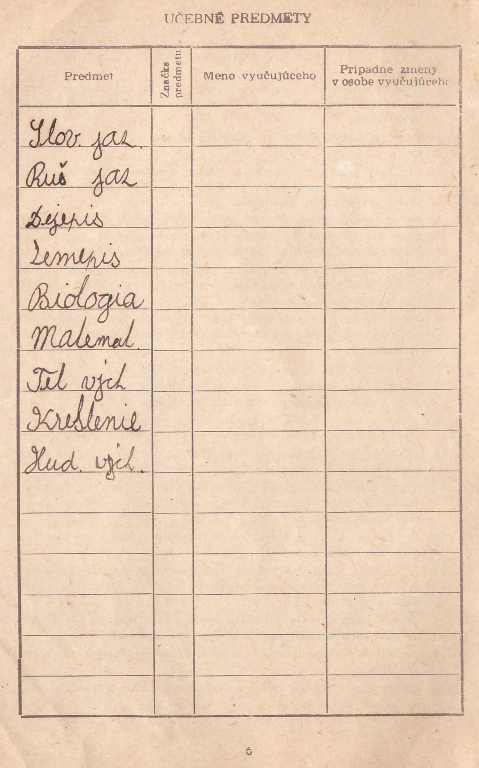 UČEBNÉ PREDMETY
Predmet
Značka
predmetu
Meno vyučujúceho
Prípadne zmeny
v osobe vyučujúceho
Slov. jaz.
Ruš jaz
Dejepis
Zemepis
Biologia
Matemat.
Tel vých
Kreslenie
Hud. vých.
6